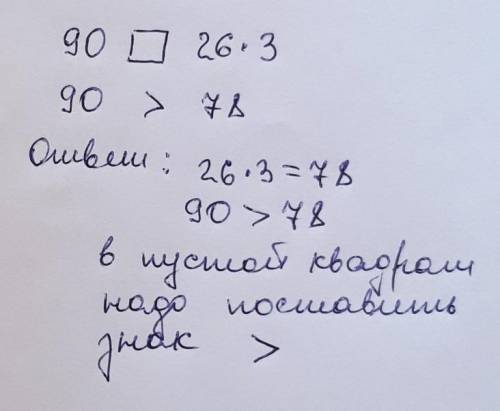 90 □ 26·3
90 > 78
Ответ: 26·3=78
90>78
в пустой квадрат
надо поставить
знак >